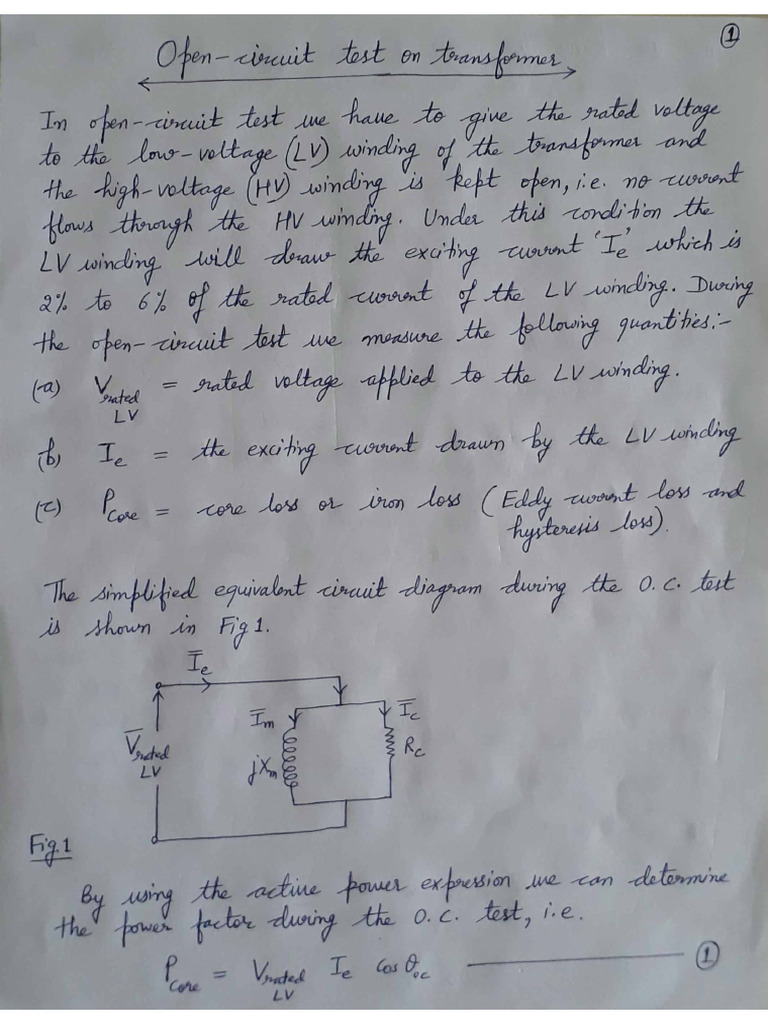 ①
Open-circuit test on transformer
In open-circuit test we have to give the rated voltage
to the low-voltage (LV) winding of the transformer and
the high-voltage (HV) winding is kept open, i.e. no current
flows through the HV winding. Under this condition the
LV winding will draw the exciting current 'Ie' which is
2% to 6% of the rated current of the LV winding. During
the open-circuit test we measure the following quantities:-
(a) Vrated LV = rated voltage applied to the LV winding.
(b) Ie = the exciting current drawn by the LV winding
(c) Pcore = core loss or iron loss (Eddy current loss and
hysteresis loss).
The simplified equivalent circuit diagram during the O.C. test
is shown in Fig 1.
I̅e
I̅m
I̅c
V̅rated LV
jXm
Rc
Fig.1
By using the active power expression we can determine
the power factor during the O.C. test, i.e.
Pcore = Vrated LV Ie cosθoc ——— ①